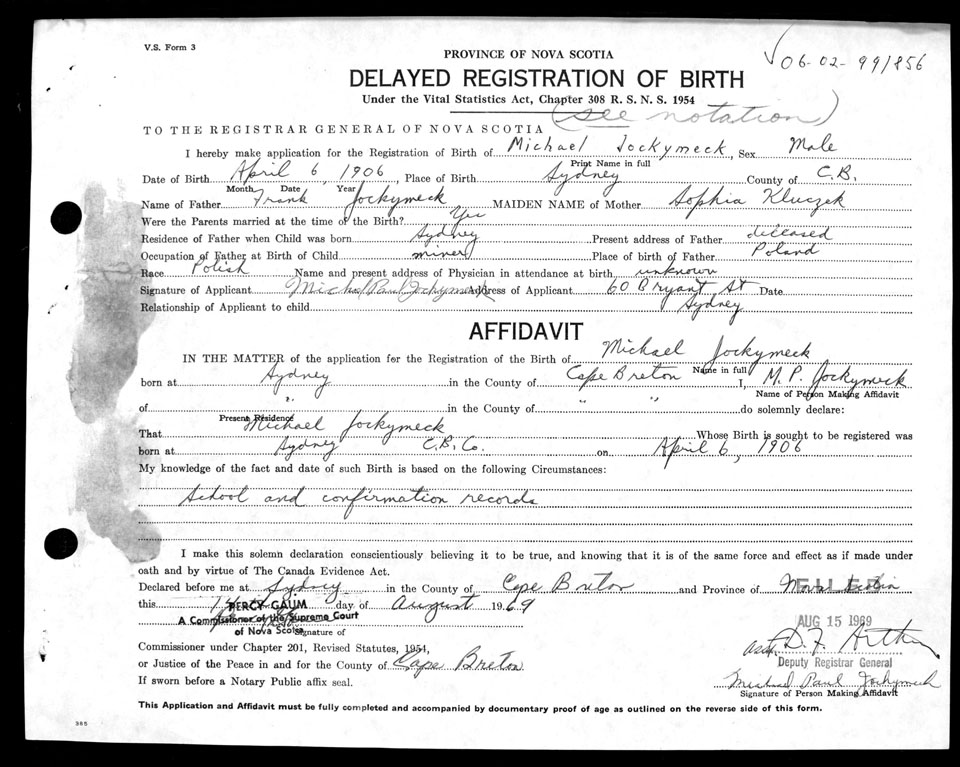 V.S. Form 3
06-02-99/856
PROVINCE OF NOVA SCOTIA
DELAYED REGISTRATION OF BIRTH
Under the Vital Statistics Act, Chapter 308 R. S. N. S. 1954
(see notation)
TO THE REGISTRAR GENERAL OF NOVA SCOTIA
I hereby make application for the Registration of Birth of Michael Jockymeck, Sex Male
Print Name in full
Date of Birth April 6, 1906, Place of Birth Sydney County of C.B.
Month Date Year
Name of Father Frank Jockymeck MAIDEN NAME of Mother Sophia Kluczek
Were the Parents married at the time of the Birth? Yes
Residence of Father when Child was born Sydney Present address of Father deceased
Occupation of Father at Birth of Child miner Place of birth of Father Poland
Race Polish Name and present address of Physician in attendance at birth unknown
Signature of Applicant Michael Paul Jockymeck Address of Applicant 60 Bryant St Date
Relationship of Applicant to child Sydney
AFFIDAVIT
IN THE MATTER of the application for the Registration of the Birth of Michael Jockymeck
Name in full
born at Sydney in the County of Cape Breton I, M. P. Jockymeck
Name of Person Making Affidavit
of " in the County of " " do solemnly declare:
Present Residence
That Michael Jockymeck Whose Birth is sought to be registered was
born at Sydney C.B. Co. on April 6, 1906
My knowledge of the fact and date of such Birth is based on the following Circumstances:
School and confirmation records
I make this solemn declaration conscientiously believing it to be true, and knowing that it is of the same force and effect as if made under
oath and by virtue of The Canada Evidence Act.
Declared before me at Sydney in the County of Cape Breton and Province of Nova Scotia
FILED
this 14 day of August 1969
PERCY GAUM
A Commissioner of the Supreme Court
of Nova Scotia
Signature of
AUG 15 1969
Commissioner under Chapter 201, Revised Statutes, 1954,
Deputy Registrar General
or Justice of the Peace in and for the County of Cape Breton
Michael Paul Jockymeck
If sworn before a Notary Public affix seal.
Signature of Person Making Affidavit
This Application and Affidavit must be fully completed and accompanied by documentary proof of age as outlined on the reverse side of this form.
385